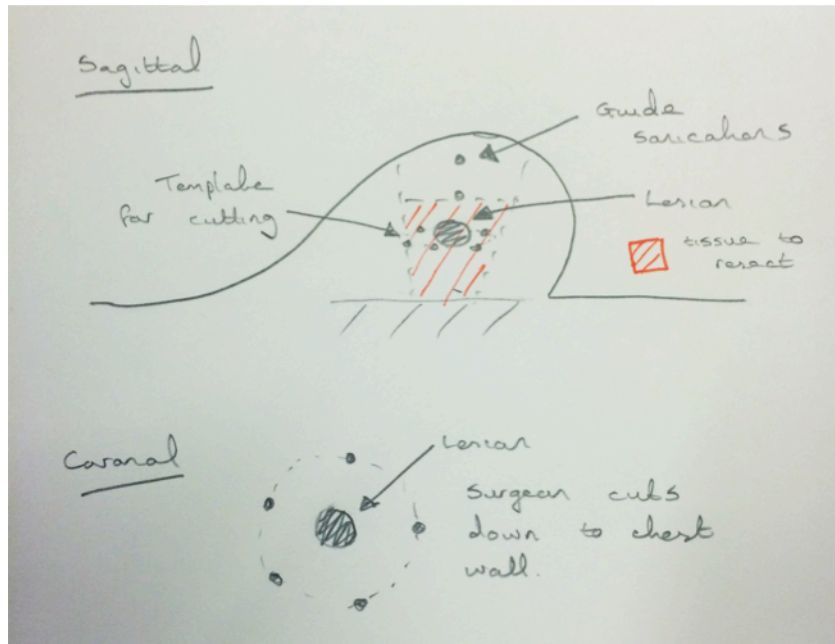 Sagittal
Guide
sonications
Template
for cutting
Lesion
tissue to
resect
Coronal
Lesion
Surgeon cuts
down to chest
wall.